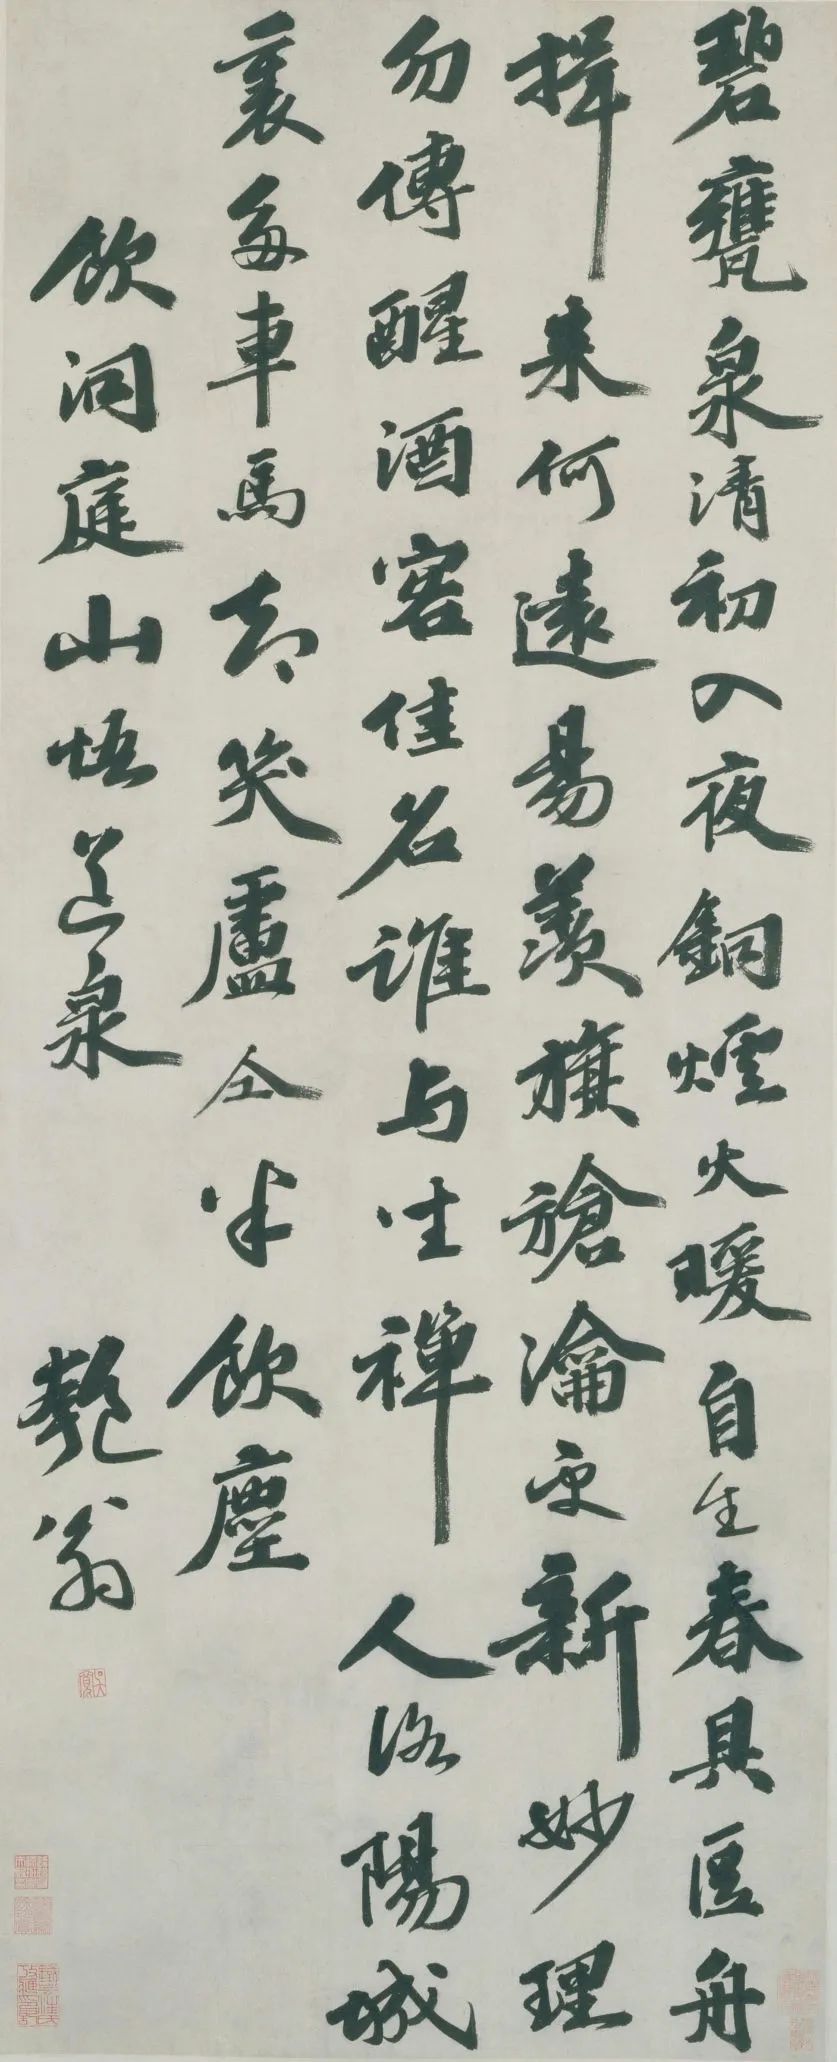 碧甕泉清初入夜銅爐火暖自生春具區舟
楫來何遠昜羨旗槍瀹更新妙理
勿傳醒酒客佳名誰与坐禪人洛陽城
裏多車馬却笑盧仝半飲塵
飲洞庭山悟道泉　匏翁